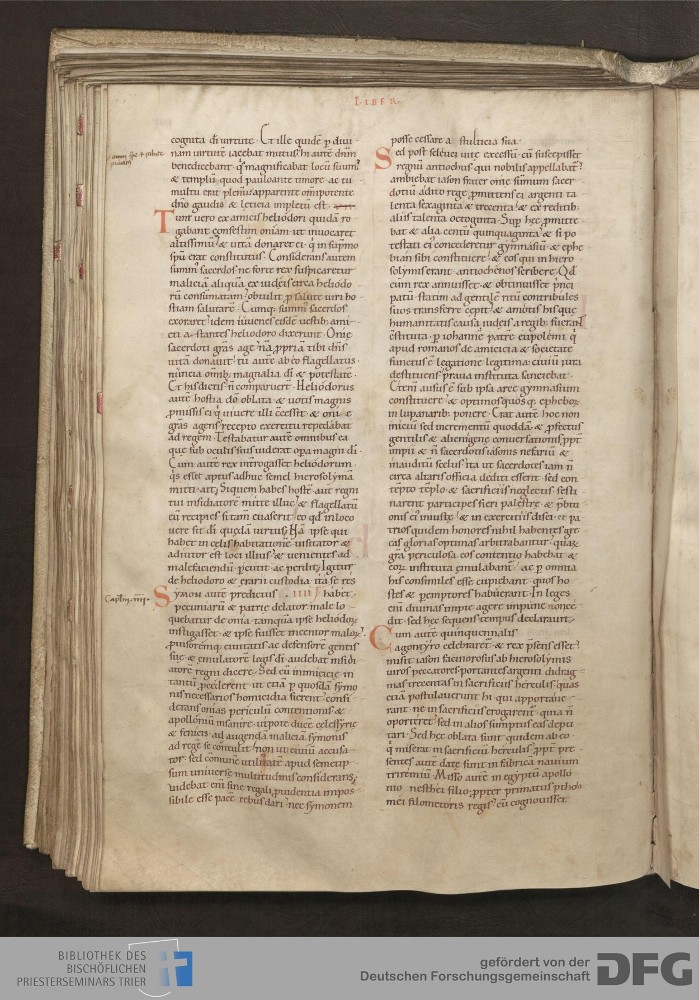 LIBER
cognita di uirtute. Et ille quidē p diui
nam uirtutē iacebat mutus; hi autē dn̄m
benedicebant. q̇ magnificabat locū suum;
& templū quod pauloante timore ac tu
multu erat plenū apparente om̄ipotente
dn̄o gaudio & leticia impletū est.
Tunc uero ex amicis heliodori quidā ro
gabant confestim oniam ut inuocaret
altissimū & uitā donaret ei. q̇ in sup̄mo
sp̄u erat constitutus. Considerans autem
summ; sacerdos ne forte rex suspicaretur
maliciā aliquā ex iudeis circa heliodo
rū consūmatam; obtulit p salute uiri ho
stiam salutarē. Cumq; summ; sacerdos
exoraret; idem iuuenes eisdē uestib; ami
cti a stantes heliodoro dixerunt. Onie
sacerdoti gr̄as age nā ppriā tibi dn̄s
uitā donauit; tu autē ab eo flagellatus
nūncia omīb; magnalia di & potestatē.
Et his dictis n̄ comparuerт. Heliodorus
autē hostia dō oblata & uotis magnis
pmissis ei q̇ uiuere illi c̄cessit & onie
gr̄as agens recepto exercitu repedabat
ad regem. Testabatur autē omnibus ea
que sub oculis suis uiderat opa magn di.
Cum autē rex introgasset heliodorum
q̇s esset aptus adhuc semel hierosolymā
mitti. ait; Siquem habes hostē aut regni
tui insidiatorē mitte illuc & flagellatū
eū recipies si tam euaserit. eo qd̄ in loco
uere sit di quędā uirtus; Nā ipse qui
habet in celis habitationē uisitator &
adiutor est loci illius & uenientes ad
malefaciendū pcutit ac perdit. Igitur
de heliodoro & erarii custodia ita se res
Capłm. IIII.
Symon autē predictus .IIII. habet.
pecuniarū & patrie delator male lo
quebatur de onia. tamquā ipse heliodor̄
instigasset & ipse fuisset incentor malor̄.
puisoremq; ciuitatis ac defensorē gentis
suę & emulatorē legis di audebat insidi
atorē regni dicere. Sed cū inimicicie in
tantū pcederent ut etiā p quosdā symo
nis necessarios homicidia fierent; consi
derans onias periculū contentionis &
apolloniū insanire. utpote ducē celessyrie
& fenicis ad augendā maliciā symonis
ad regē se contulit. non ut ciuiū accusa
tor. sed comunē utilitatē apud semetip
sum uniuersę multitudinis considerans;
uidebat enī sine regali puidentia impos
sibile esse pacē rebus dari. nec symonem
posse cessare a stulticia sua.
Sed post seleuci uitę excessū cū suscepisset
regnū antiochus qui nobilis appellabat;
ambiebat iason frater onie sūmum sacer
dotiū. adito rege pmittens ei argenti ta
lenta sexaginta & trecenta & ex reditib;
aliis talenta octoginta. Sup hęc pmitte
bat & alia centū quinquaginta & si po
testati ei concederetur gymnasiū & ephe
bian sibi constituere & eos qui in hiero
solymis erant antiochenos scribere. Qd̄
cum rex annuisset & obtinuisset pnci
patū. statim ad gentilē ritū contribules
suos transferre cępit. & amotis his que
humanitatis causa iudeis a regib; fuerant
c̄stituta. p iohannē patrē eupolemi q̇
apud romanos de amicicia & societate
functus ē legatione legitima. ciuiū iura
destituens praua instituta sanciebat.
Etenī ausus ē sub ipsa arce gymnasium
constituere & optimos quosq; epheborū
in lupanarib; ponere. Erat autē hoc non
iniciū sed incrementū quoddā & pfectus
gentilis & alienigenę conuersationis. ppt
impii & n̄ sacerdotis iasonis nefariū &
inauditū scelus. ita ut sacerdotes iam n̄
circa altaris officia dediti essent. sed con
tēpto tēplo & sacrificiis neglectis. festi
narent participes fieri palestrę & p̄biti
onis ei iniustę & in exercitiis disci. & pa
trios quidem honores nihil habentes. gre
cas glorias optimas arbitrabantur. quar̄
grā periculosa eos contentio habebat &
eor̄ instituta emulabant. ac p omnia
his consimiles esse cupiebant. quos ho
stes & pemptores habuerant. In leges
enī diuinas impie agere impunē non ce
dit. sed hęc sequens tempus declarauit.
Cum autē quinquennalis
agon tyro celebraret & rex psens esset;
misit iason facinorosus ab hierosolymis
uiros peccatores portantes argenti didrag
mas trecentas in sacrificiū herculis. quas
etiā postulauerunt hi qui apportaue
rant. ne in sacrificiis erogarent. quia n̄
oporteret. sed in alios sumptus eas depu
tari. Sed hęc oblata sunt quidem ab eo
q̇ miserat in sacrificiū herculis. ppt pre
sentes autē datę sunt in fabricā nauium
triremiū. Misso autē in egyptū apollo
nio nesthei filio. ppter primatus ptholo
mei filometoris regis; cū cognouisset
BIBLIOTHEK DES
BISCHÖFLICHEN
PRIESTERSEMINARS TRIER
gefördert von der
Deutschen Forschungsgemeinschaft
DFG